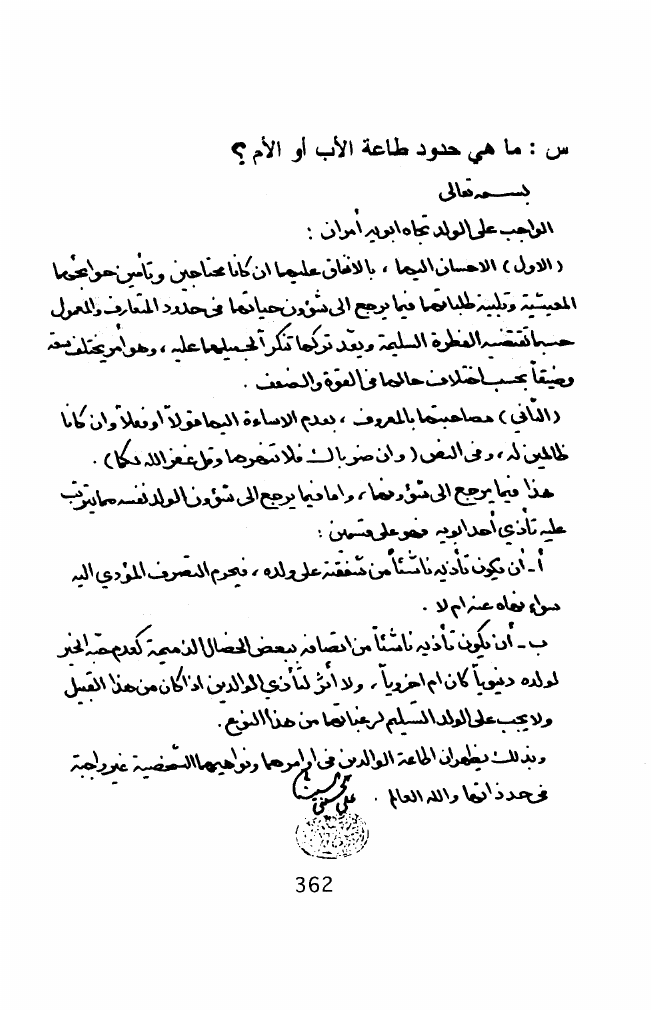 س : ما هي حدود طاعة الأب أو الأم ؟
بسمه تعالى
الواجب على الولد تجاه ابويه أمران :
(الاول) الاحسان اليهما ، بالانفاق عليهما ان كانا محتاجين وتأمين حوائجهما
المعيشية وتلبية طلباتهما فيما يرجع الى شؤون حياتهما في حدود المتعارف والمعمول
حسبما تقتضيه الفطرة السليمة ويعدّ تركها تنكراً لجميلهما عليه ، وهو أمر يختلف سعة
وضيقاً بحسب اختلاف حالهما في القوة والضعف .
(الثاني) مصاحبتهما بالمعروف ، بعدم الاساءة اليهما قولاً او فعلاً وان كانا
ظالمين له ، وفي النص (وان ضرباك فلا تنهرهما وقل غفر الله لكما) .
هذا فيما يرجع الى شؤونهما ، واما فيما يرجع الى شؤون الولد نفسه مما يترتب
عليه تأذي أحد ابويه فهو على قسمين :
أ - أن يكون تأذيه ناشئاً من شفقته على ولده ، فيحرم التصرف المؤدي اليه
سواء نهاه عنه ام لا .
ب - أن يكون تأذيه ناشئاً من اتصافه ببعض الخصال الذميمة كعدم حبّه الخير
لولده دنيوياً كان ام اخروياً ، ولا أثر لتأذي الوالدين اذا كان من هذا القبيل
ولا يجب على الولد التسليم لرغباتهما من هذا النوع .
وبذلك يظهر ان اطاعة الوالدين في اوامرهما ونواهيهما الشخصية غير واجبة
في حد ذاتها والله العالم .
علي الحسيني السيستاني
362